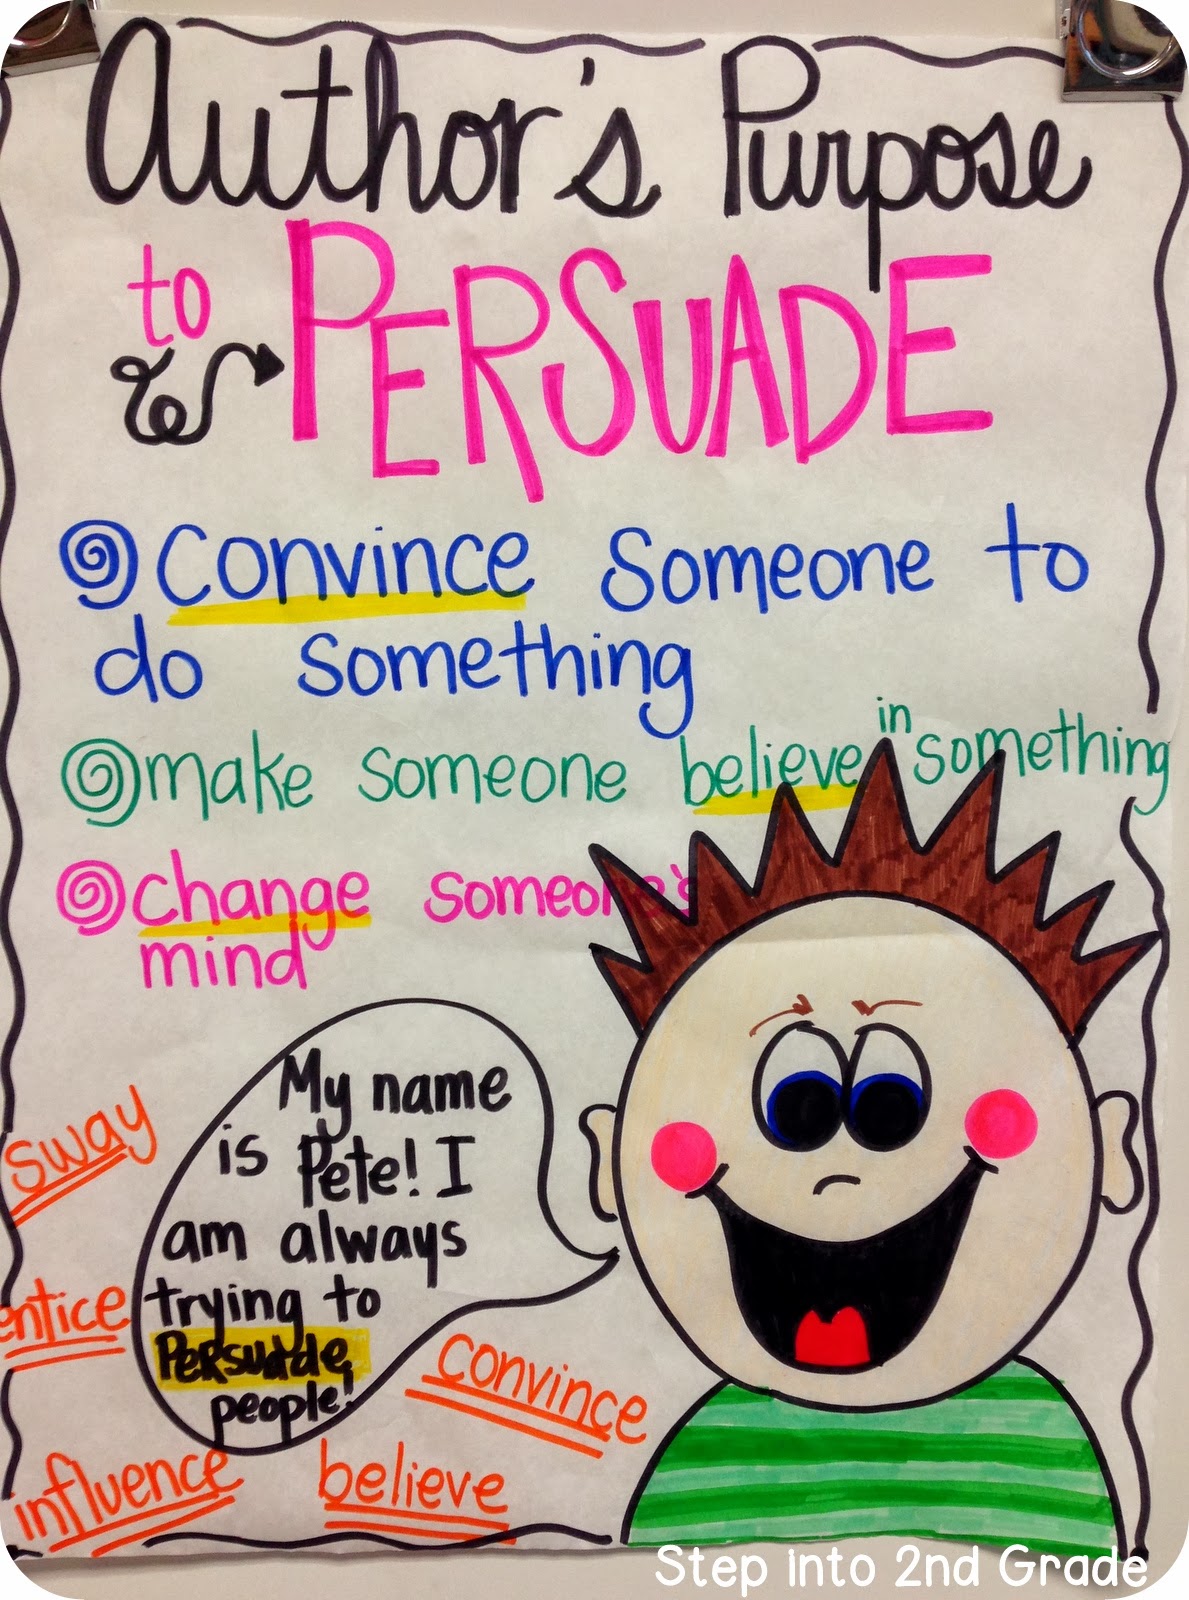 Author's Purpose
to PERSUADE
convince someone to
do something
make someone believe in something
change someone's
mind
My name
is Pete! I
am always
trying to
Persuade
people!
sway
entice
convince
influence
believe
Step into 2nd Grade